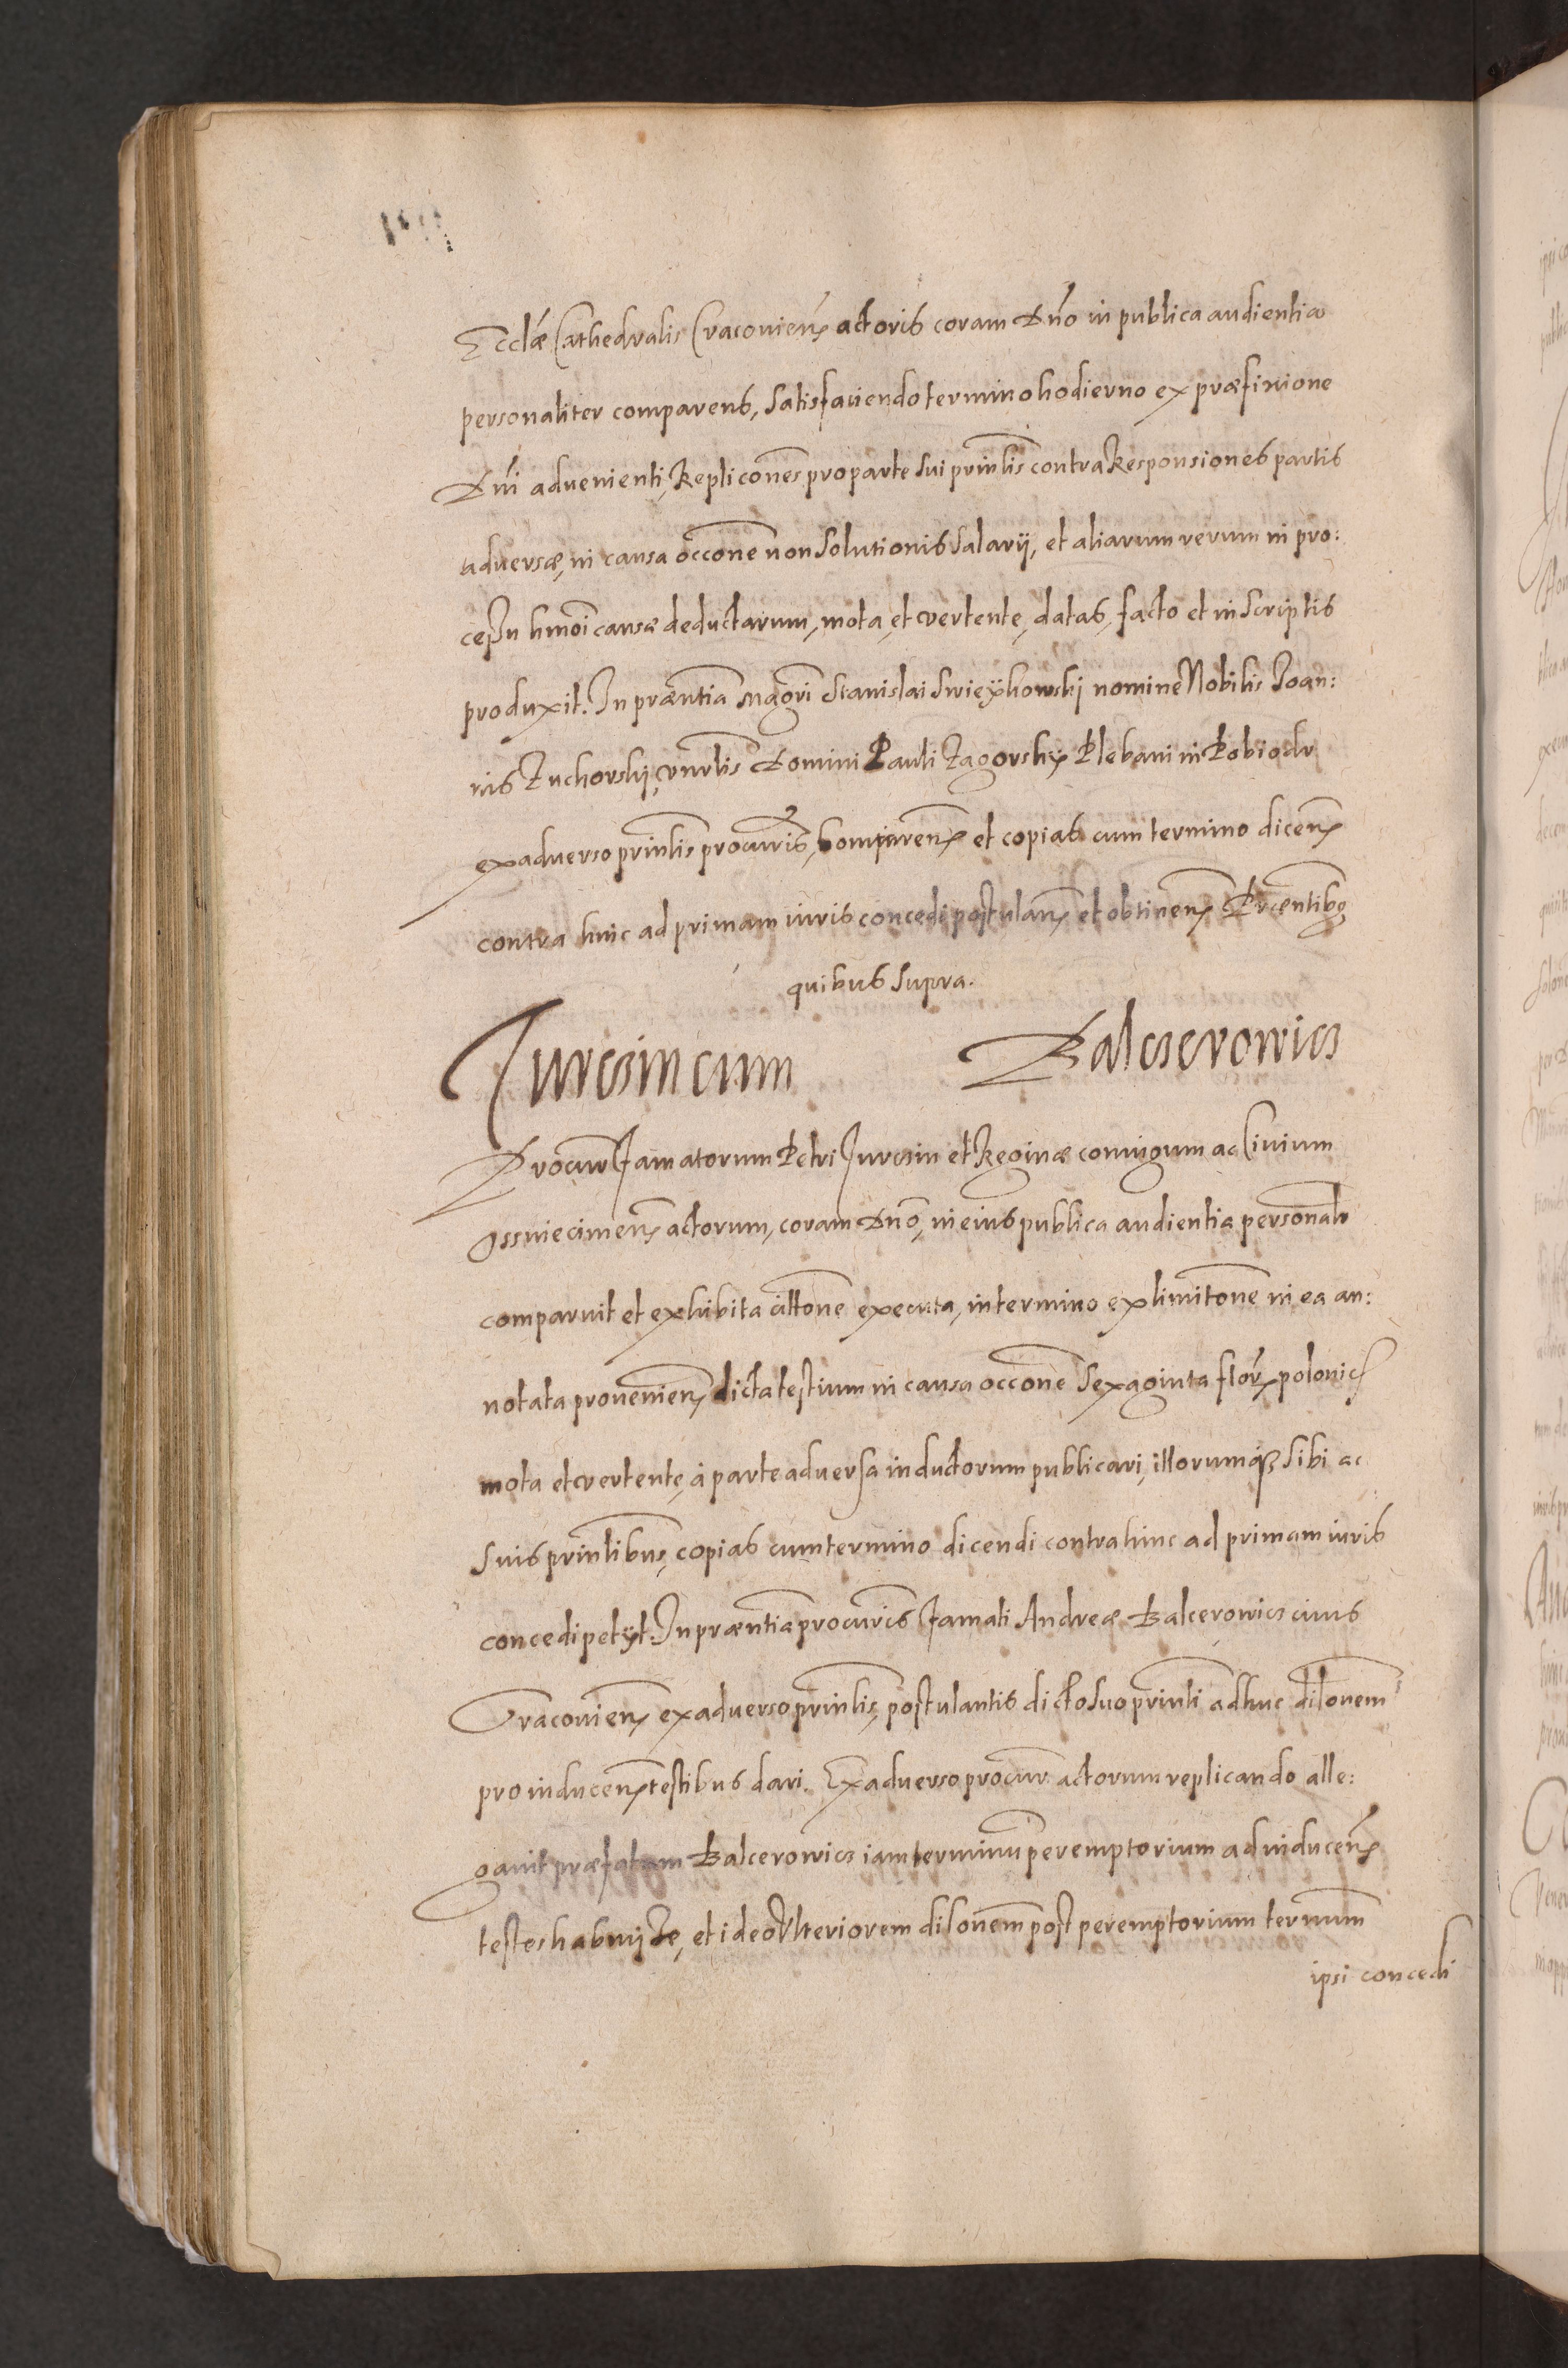 Ecclæ Cathedralis Cracovien̄ actoris coram Dno in publica audientia
personaliter comparens, satisfaciendo termino hodierno ex præfixione
Dni advenienti, Replicones pro parte sui prinlis contra Responsiones partis
adversæ, in causa occone non solutionis salarij, et aliarum rerum in pro:
cessu hmoi causæ deductarum, mota, et vertente, datas, facto et in scriptis
produxit. In præntia Magri Stanislai Swieykowskj nomine Nobilis Joan:
nis Zuchorskj, Domini Pauli Zagorsky Plebani in
ex adverso prinlis procuris, comparen̄ et copias cum termino dicen̄
contra hinc ad primam iuris concedi postulan̄ et obtinen̄ Præntibq
quibus supra.
Jurcsin cum Balcserowics
Procur famatorum Petri Jurcsin et Reginæ coniugum ac Civium
Osswiecimen̄ actorum, coram Dno, in eius publica audientia personalr
comparuit et exhibita cittone executa, in termino ex limitone in ea an:
notata provenien̄ dicta testium in causa occone Sexaginta flor̄ polonic
mota et vertente, à parte adversa inductorum publicari, illorumq3 sibi ac
suis prinlibus, copias cum termino dicendi contra hinc ad primam iuris
concedi petijt. In præntia procuris famati Andreæ Balcerowics civis
Cracovien̄ ex adverso prinlis, postulantis dicto suo prinli adhuc dilonem
pro inducen̄ testibus dari. Ex adverso procur actorum replicando alle:
gavit præfatum Balcerowics iam terminū peremptorium ad inducen̄
testes habuisse, et ideo Ulteriorem dilonem post peremptorium termum
ipsi concedi